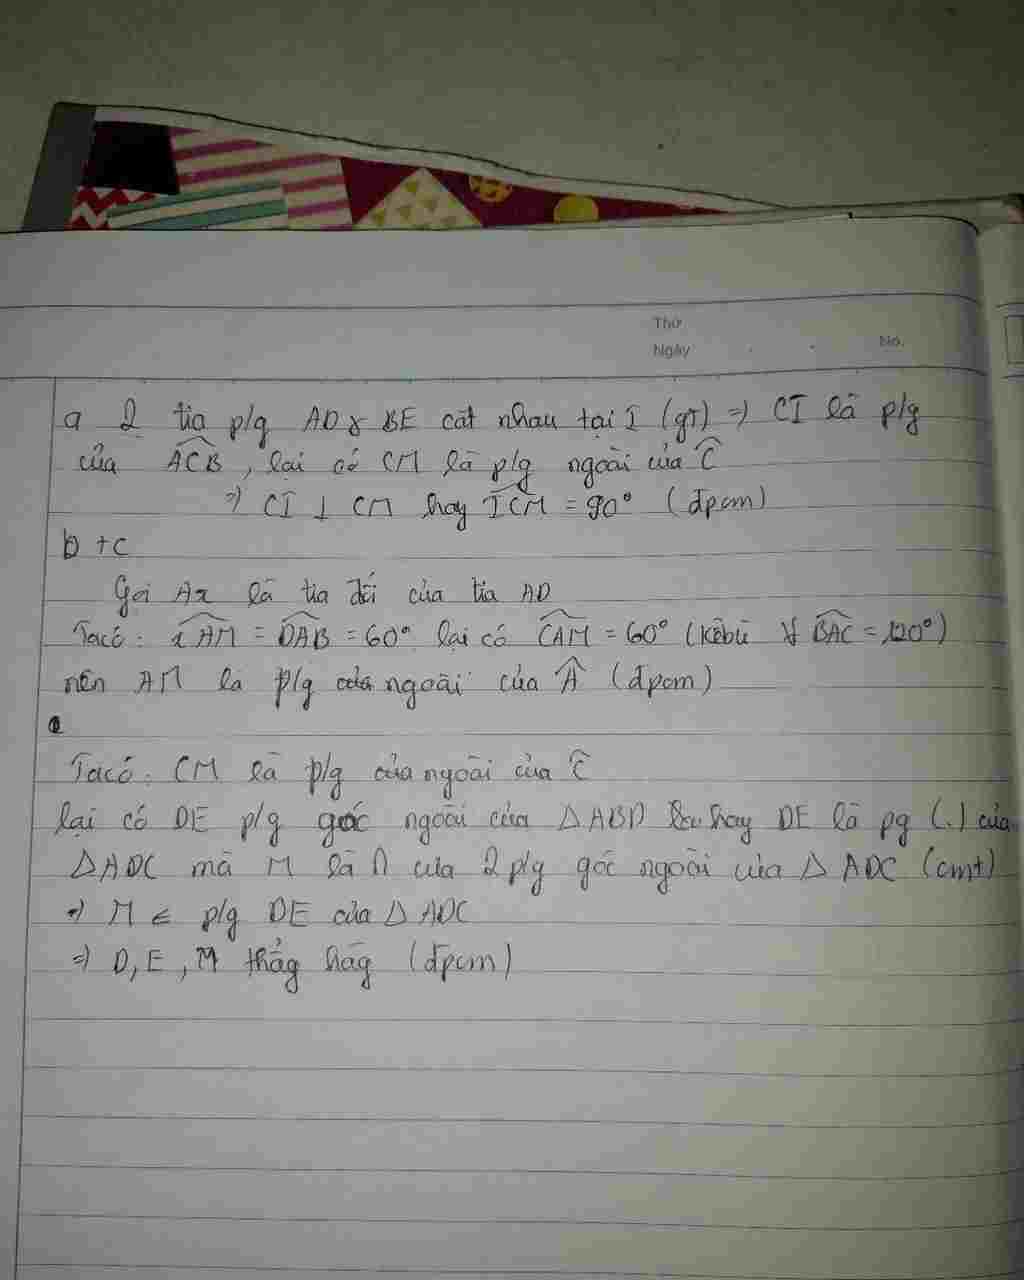 Thứ
Ngày . . No.
a 2 tia p/g AD & BE cắt nhau tại I (gt) => CI là p/g
của ACB, lại có CM là p/g ngoài của C
=> CI ⊥ CM hay ICM = 90° (đpcm)
b + c
Gọi Ax là tia đối của tia AD
Tacó: xAM = DAB = 60° lại có CAM = 60° (kềbù BAC = 120°)
nên AM là p/g ngoài của A (đpcm)
Tacó: CM là p/g của ngoài của C
lại có DE p/g góc ngoài của △ABD hay DE là pg (.) của
△ADC mà M là ∩ của 2 p/g góc ngoài của △ ADC (cmt)
=> M ∈ p/g DE của △ ADC
=> D, E, M thẳg hàg (đpcm)